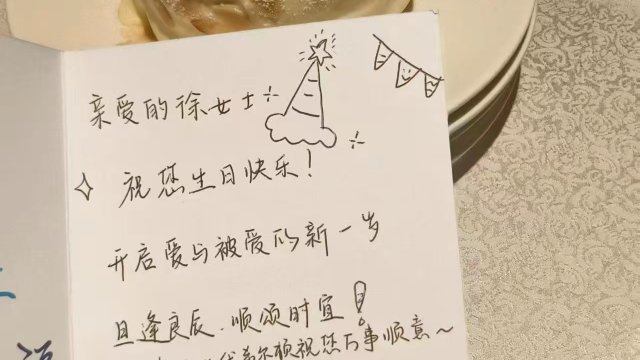 亲爱的徐女士
祝您生日快乐！
开启爱与被爱的新一岁
且逢良辰.顺颂时宜！
祝您万事顺意~